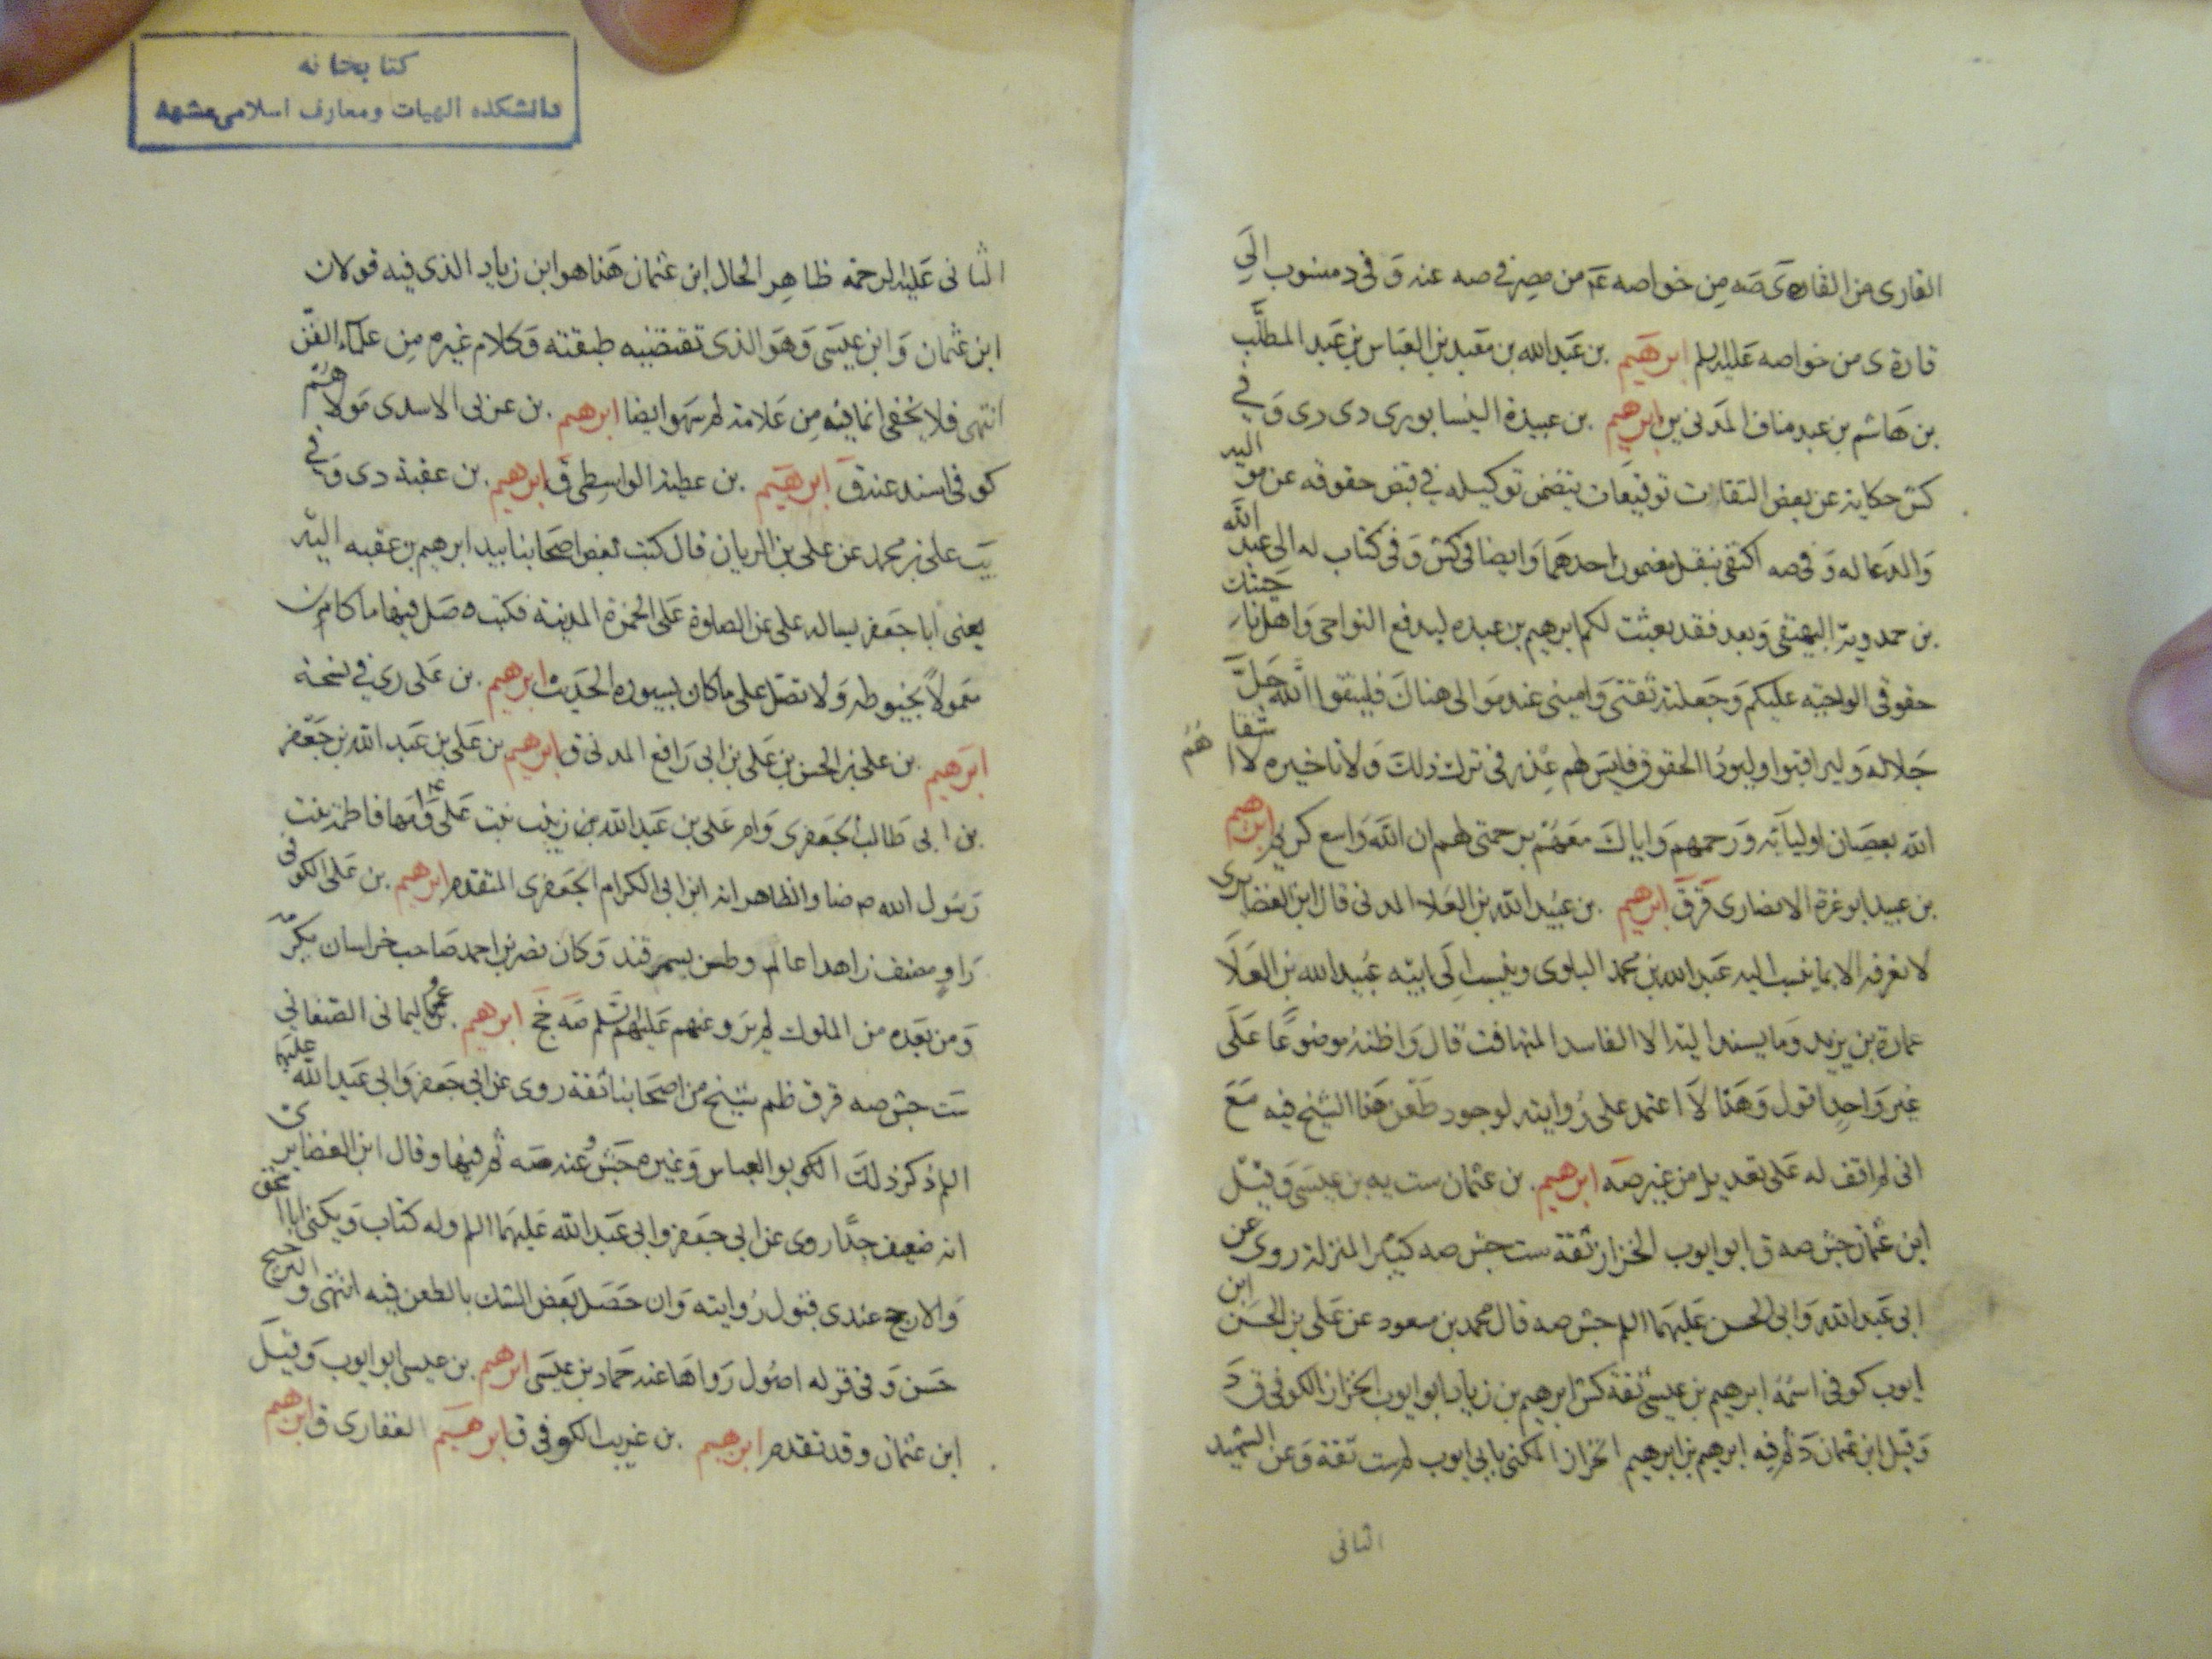 القارى من القارة ى صه من خواصه عم من مصر فى صه عنه وفى د منسوب الى
قارة ى من خواصه عليه لم ابرهيم بن عبد الله بن معبد بن العباس بن عبد المطلب
بن هاشم بن عبد مناف المدنى ين ابرهيم بن عبدة النيسابورى دى رى وفى
كش حكاية عن بعض الثقات توقيعات يتضمن توكيله فى قبض حقوقه عن مواليه
والدعا له وفى صه اكتفى بنقل مضمون احدهما وايضا فى كش وفى كتاب له الى عبد الله
بن حمدويه البيهقى وبعد فقد بعثت لكم ابرهيم بن عبده ليدفع النواحى واهل ناحيتك
حقوقى الواجبة عليكم وجعلته ثقتى وامينى عند موالى هناك فليتقوا الله جل
جلاله وليراقبوا وليودوا الحقوق فليس لهم عذر فى ترك ذلك ولا تاخيره لا اشقاهم
الله بعصيان اوليآئه ورحمهم واياك معهم برحمتى لهم ان الله واسع كريم ابرهيم
بن عبيد ابو غرة الانصارى قر ق ابرهيم بن عبيد الله بن العلا المدنى قال ابن الغضايرى
لا نعرفه الا بما ينسب اليه عبد الله بن محمد البلوى وينسب الى ابيه عبيد الله بن العلا
عمارة بن يزيد وما يسند اليه الا الفاسد المتهافت قال واظنه موضوعا على
غير واحد اقول وهذا لا اعتمد على روايته لوجود طعن هذا الشيخ فيه مع
انى لم اقف له على تعديل من غيره صه ابرهيم بن عثمان ست يه بن عيسى وقيل
ابن عثمان جش صه ق ابو ايوب الخزاز ثقة ست جش صه كبير المنزلة روى عن
ابى عبد الله وابى الحسن عليهما الم جش صه قال محمد بن مسعود عن على بن الحسن ابن
ايوب كوفى اسمه ابرهيم بن عيسى ثقة كش ابرهيم بن زياد ابو ايوب الخزاز الكوفى ق د
وقيل ابن عثمان د لم فيه ابرهيم بن ابرهيم الخزاز المكنى بابى ايوب لم ست ثقة وعن الشهيد
الثانى
كتابخانه
دانشكده الهيات ومعارف اسلامى مشهد
الثانى عليه الرحمة ظاهر الحال ابن عثمان هذا هو ابن زياد الذى فيه قولان
ابن عثمان وابن عيسى وهو الذى تقتضيه طبقته وكلام غيره من علمآء الفن
انتهى فلا يخفى انما فيه من علامة لم سهو ايضا ابرهيم بن عربى الاسدى مولاهم
كوفى اسند عنه ق ابرهيم بن عطية الواسطى ق ابرهيم بن عقبة دى وفى
يب على بن محمد عن على بن الريان قال كتب بعض اصحابنا بيد ابرهيم بن عقبه اليه
يعنى ابا جعفر يساله على عن الصلوة على الخمرة المدنية فكتب ه صل فيها ما كان
معمولا بخيوطه ولا تصل على ما كان بسيوره الحديث ابرهيم بن على رى فى نسخة
ابرهيم بن على بن الحسن بن على بن ابى رافع المدنى ق ابرهيم بن على بن عبد الله بن جعفر
بن ابى طالب الجعفرى وام على بن عبد الله بن زينب بنت على ع وامها فاطمة بنت
رسول الله ص ضا والظاهر انه ابن ابى الكرام الجعفرى المتقدم ابرهيم بن على الكوفى
راو مصنف زاهد عالم وطن بسمرقند وكان نصر بن احمد صاحب خراسان يكرمه
ومن بعده من الملوك لم يرو عنهم عليهم لم صه جخ ابرهيم بن عمر اليمانى الصنعانى
ست جش صه قر ق ظم شيخ من اصحابنا ثقة روى عن ابى جعفر وابى عبد الله عليهما
الم ذكر ذلك ابو العباس وغيره جش وعنه صه لم فيها وقال ابن الغضايرى
انه ضعيف جدا روى عن ابى جعفر وابى عبد الله عليهما الم وله كتاب ويكنى ابا اسحق
والارجح عندى قبول روايته وان حصل بعض الشك بالطعن فيه انتهى والترجيح
حسن وفى قر له اصول رواها عنه حماد بن عيسى ابرهيم بن عيسى ابو ايوب وقيل
ابن عثمان وقد تقدم ابرهيم بن غريب الكوفى ق ابرهيم الغفارى ق ابرهيم